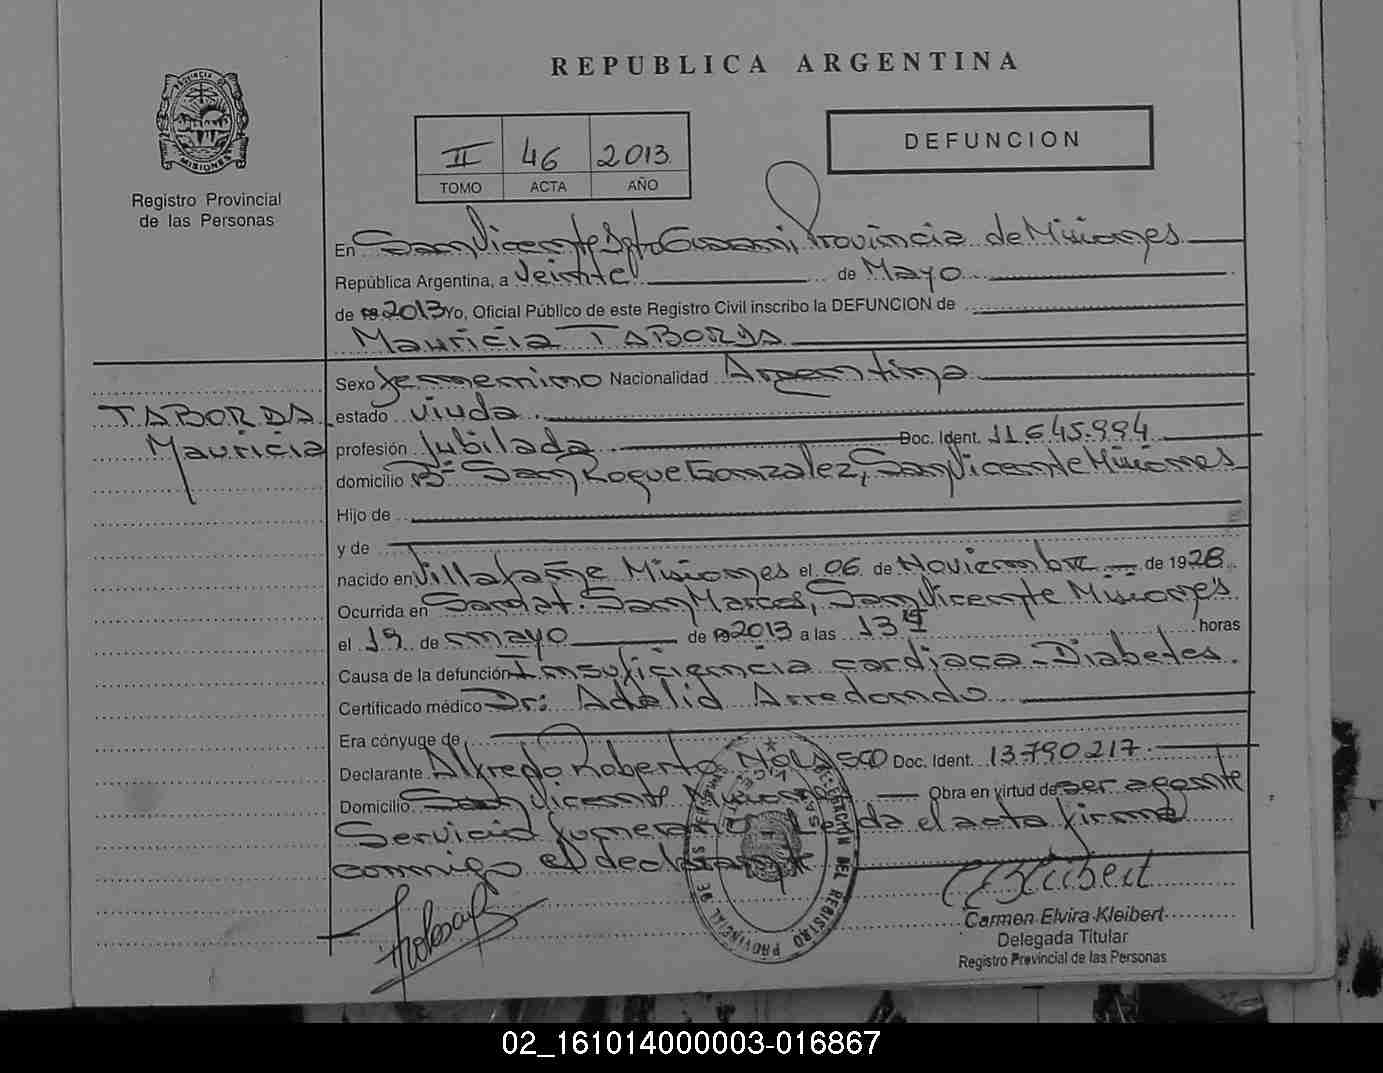 REPUBLICA ARGENTINA
PROVINCIA DE MISIONES
Registro Provincial
de las Personas
II 46 2013
TOMO ACTA AÑO
DEFUNCION
En San Vicente Dpto Guarani Provincia de Misiones
República Argentina, a Veinte de Mayo
de 2013 Yo, Oficial Público de este Registro Civil inscribo la DEFUNCION de
Mauricia TABORDA
TABORDA
Mauricia
Sexo femenino Nacionalidad Argentina
estado viuda
profesión Jubilada Doc. Ident. 11.645.994
domicilio Bº San Roque Gonzalez, San Vicente Misiones
Hijo de
y de
nacido en Villafañe Misiones el 06 de Noviembre de 1928
Ocurrida en San Marcos, San Vicente Misiones
el 19 de mayo de 2013 a las 13 horas
Causa de la defunción Insuficiencia cardiaca - Diabetes.
Certificado médico Dr: Adelid Arredondo
Era cónyuge de
Declarante Alfredo Roberto NOLASCO Doc. Ident. 13.790.217
Domicilio San Vicente Misiones Obra en virtud de ser agente
Servicio funerario Leida el acta firma
conmigo el declarante
DELEGACIÓN DEL REGISTRO PROVINCIAL DE LAS PERSONAS
SAN VICENTE
Carmen Elvira Kleibert
Delegada Titular
Registro Provincial de las Personas
02_161014000003-016867